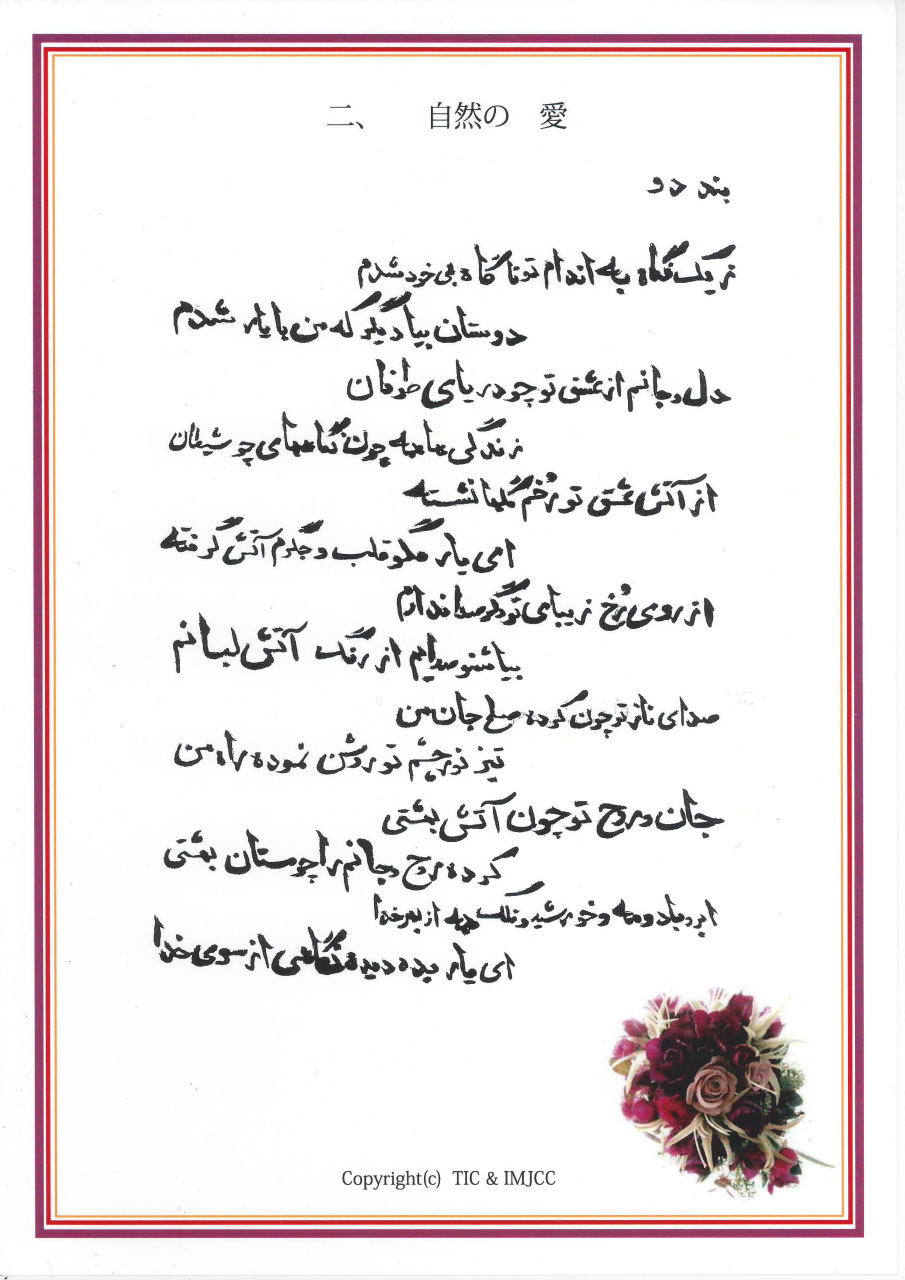 二、 自然の 愛
بند دو
ز یک نگاه به اندام تو ناگاه بی خود شدم
دوستان بیا دیگر که من با یار شدم
دل و جانم از عشق تو چو دریای طوفان
زندگی ها همه چون نگاههای چو شیطان
از آتش عشق تو رُخم گلها نشسته
ای یار مگو قلب و جگرم آتش گرفته
از روی رُخ زیبای تو گر صدا ندارم
بیا شنو صدایم از رنگ آتش لبانم
صدای ناز تو چون کرده صلح جان من
تیز نور چشم تو روشن نموده راه من
جان و روح تو چون آتش بهشتی
کرده روح و جانم را چو ستان بهشتی
ابر و باد و مه و خورشید و فلک همه از بهر خدا
ای یار بده دیده نگاهی از سوی خدا
Copyright(c) TIC & IMJCC